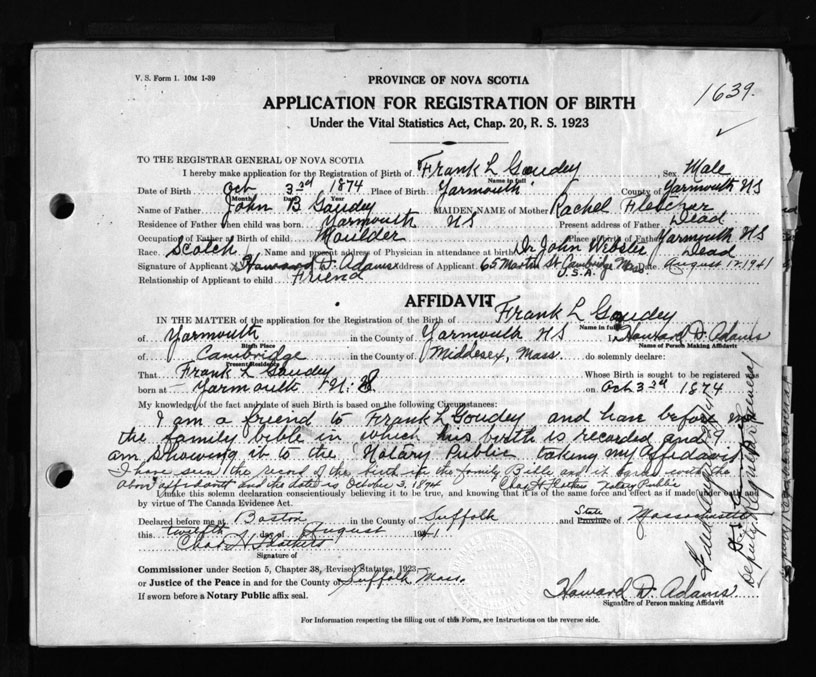 V. S. Form 1. 10M 1-39
PROVINCE OF NOVA SCOTIA
1639.
APPLICATION FOR REGISTRATION OF BIRTH
Under the Vital Statistics Act, Chap. 20, R. S. 1923
TO THE REGISTRAR GENERAL OF NOVA SCOTIA
I hereby make application for the Registration of Birth of Frank L Goudey Sex Male
Name in full
Date of Birth Oct 3rd 1874 Place of Birth Yarmouth County of Yarmouth NS
Month Day Year
Name of Father John B Goudey MAIDEN NAME of Mother Rachel Fletcher
Residence of Father when child was born Yarmouth NS Present address of Father Dead
Occupation of Father at Birth of child Moulder Place of Birth of Father Yarmouth NS
Race Scotch Name and present address of Physician in attendance at birth Dr John Webster Dead
Signature of Applicant Howard D. Adams Address of Applicant 65 Martin St Cambridge Mass Date August 12 1941
U.S.A.
Relationship of Applicant to child Friend
AFFIDAVIT
IN THE MATTER of the application for the Registration of the Birth of Frank L Goudey
Name in full
of Yarmouth in the County of Yarmouth NS I, Howard D. Adams
Birth Place Name of Person Making Affidavit
of Cambridge in the County of Middlesex, Mass. do solemnly declare:
Present Residence
That Frank L Goudey Whose Birth is sought to be registered was
born at Yarmouth N. S on Oct 3rd 1874
My knowledge of the fact and date of such Birth is based on the following Circumstances:
I am a friend to Frank L Goudey and have before me
the family bible in which his birth is recorded and I
am showing it to the Notary Public taking my Affidavit
I have seen the record of the birth in the family Bible and it agrees with the
above affidavit and the date is October 3, 1874 Notary Public
I make this solemn declaration conscientiously believing it to be true, and knowing that it is of the same force and effect as if made under oath and
by virtue of The Canada Evidence Act.
Declared before me at Boston in the County of Suffolk and State Province of Massachusetts
this twelfth day of August 1941
Signature of
Commissioner under Section 5, Chapter 38, Revised Statutes, 1923
or Justice of the Peace in and for the County of Suffolk Mass.
If sworn before a Notary Public affix seal.
Howard D. Adams
Signature of Person making Affidavit
For Information respecting the filling out of this Form, see Instructions on the reverse side.
Deputy Registrar General